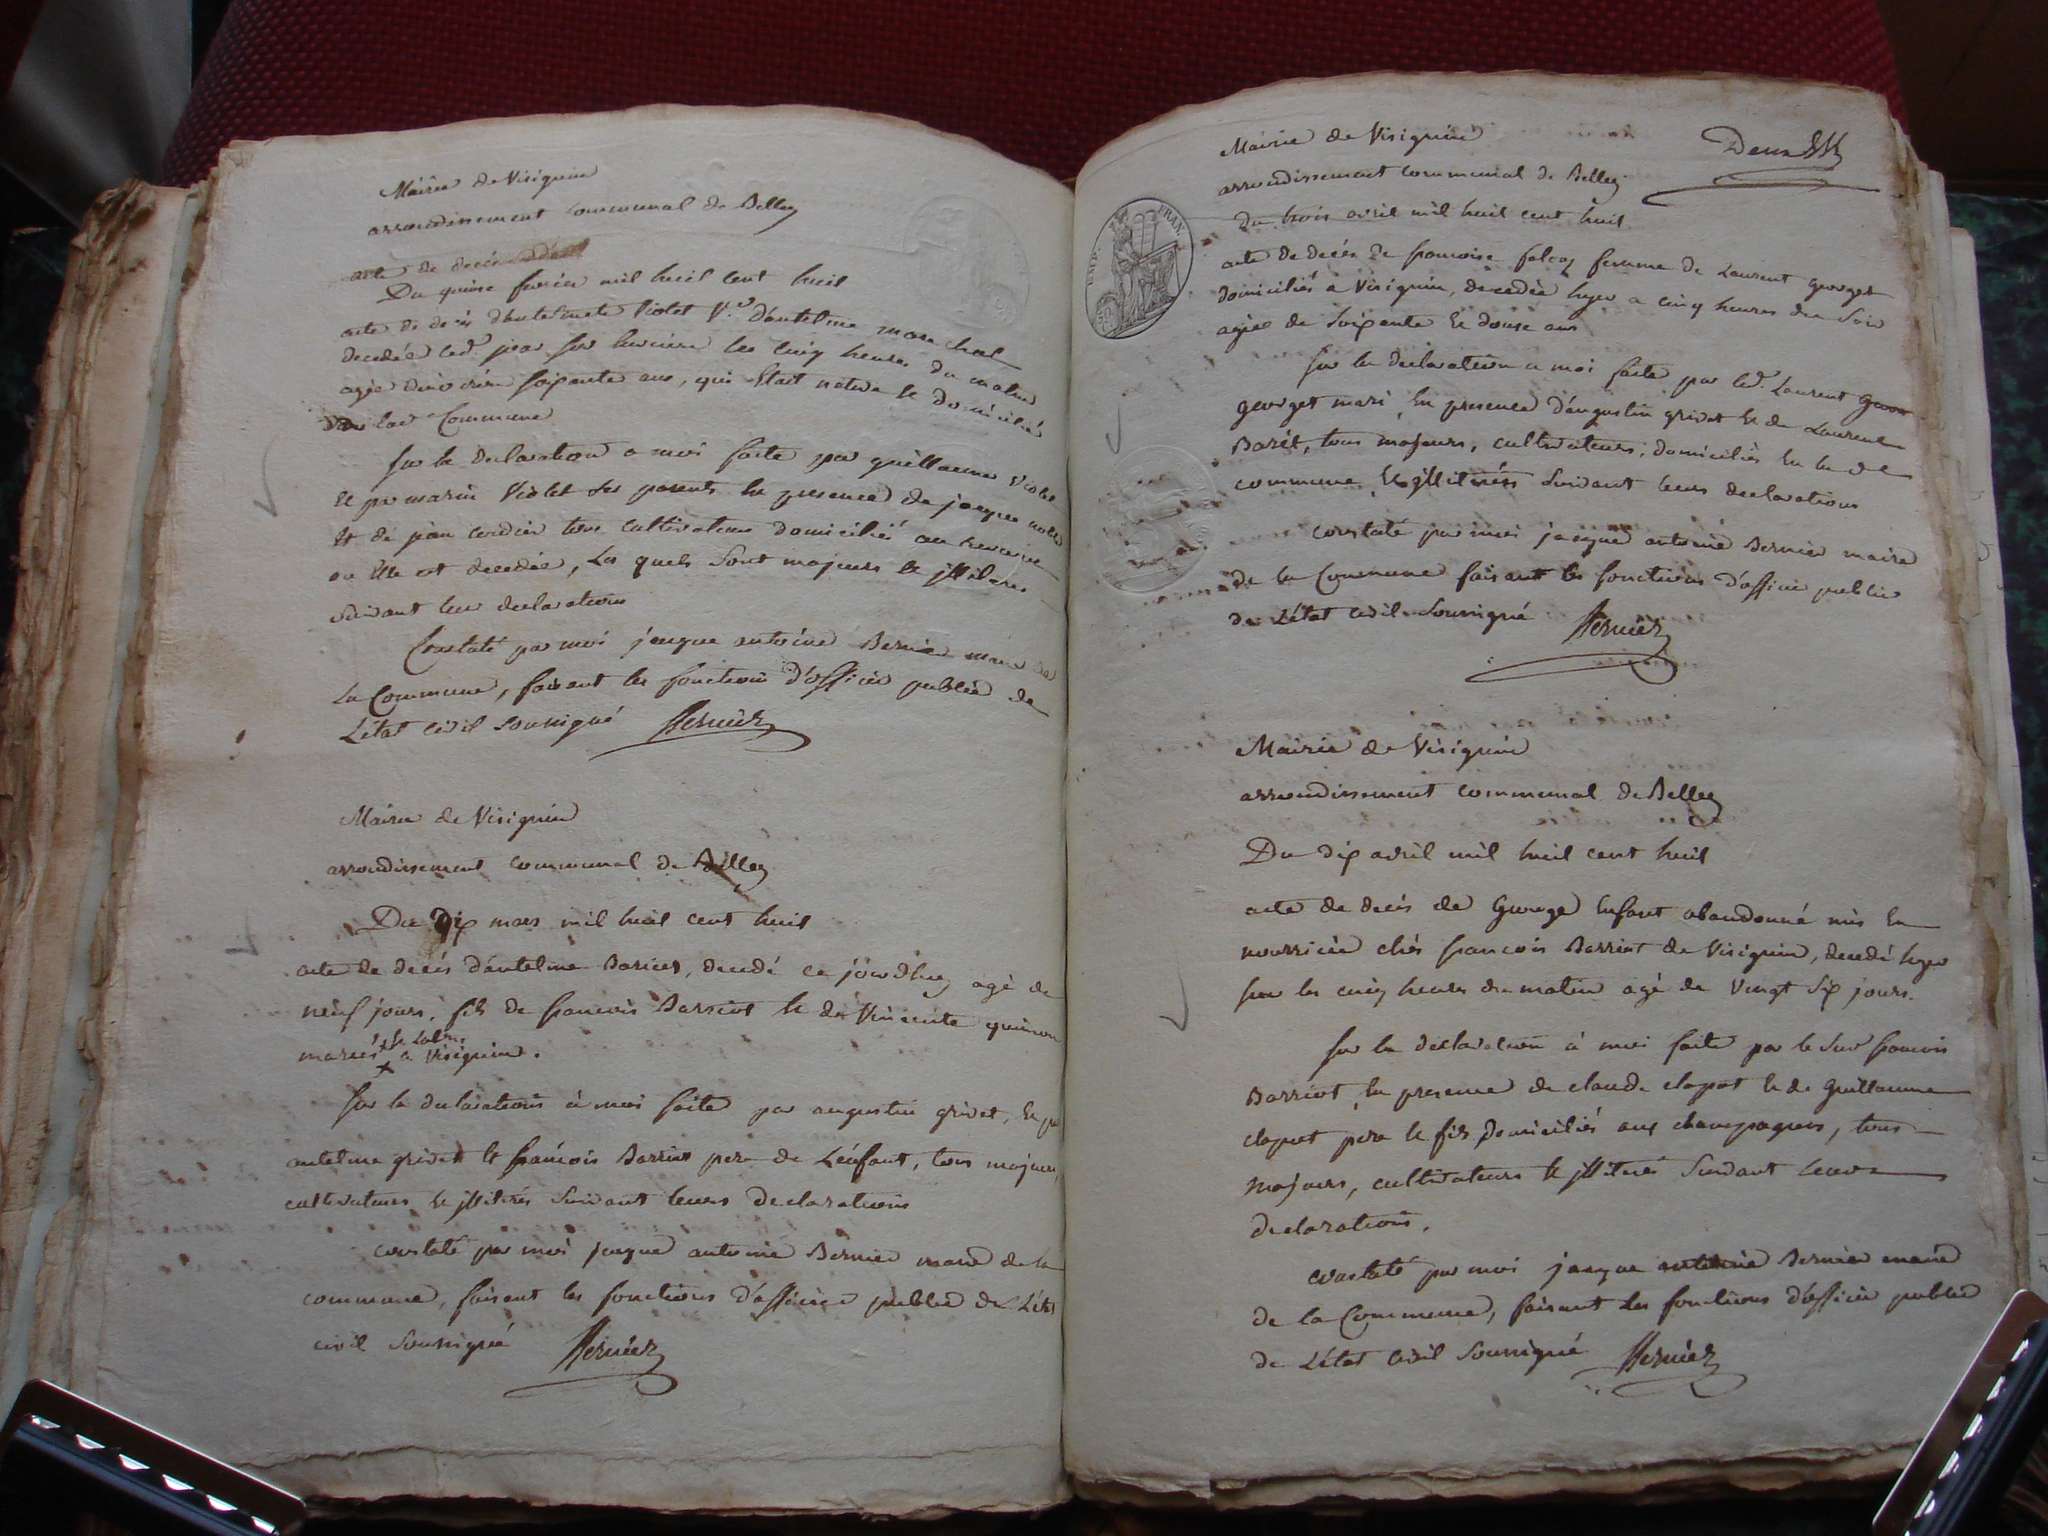 Mairie de Visignin
arrondissement communal de Belley
acte de decés
Du quinse fevrier mil huil cent huil
acte de decés d'antelmete Violet V.e d'antelme marechal
decedée led. jour sur les cinq heures du matin
agée d'environ soixante ans, qui Etait native et domicilié
lad Commune
sur la declaration a moi faite par guillaume Violet
et marin Violet ses parents en presence de jacques
et de jean cordier tous cultivateurs domicilié au
ou Elle est decedée, Les quels sont majeurs et jllitérés
suivant leur declaration
Constaté par moi jacque antoine Bernier maire de
La Commune, faisant les fonctions d'officier public de
L'état civil soussigné Bernier
Mairie de Visignin
arrondissement communal de Belley
Du Dix mars mil huil cent huil
acte de decés d'antelme Barriot, decedé ce jourdhuy agé de
neuf jours, fils de francois Barriot et de Vincente
mariés a Visignin.
sur la declaration à moi faite par augustin grivet, et par
antelme grivet et francois Barriot pere de L'enfant, tous majeurs,
cultivateurs et jllitérés suivant leurs declarations
constaté par moi jacque antoine Bernier maire de la
commune, faisant les fonctions d'officier public de L'état
civil soussigné Bernier
Deux
Mairie de Visignin
arrondissement communal de Belley
du trois avril mil huil cent huil
EMP. FRAN.
acte de decés de francoise falcoz femme de Laurent georget
domiciliés à Visignin, decedée hyer a cinq heures du soir
agée de soixante et douse ans
sur la declaration a moi faite par led. Laurent
georget mari, en presence d'augustin grivet et de Laurent
Barét, tous majeurs, cultivateurs, domiciliés en la de
commune et jllitérés suivant leurs declarations
constaté par moi jacque antoine Bernier maire
de la Commune faisant les fonctions d'officier public
de L'état civil soussigné Bernier
Mairie de Visignin
arrondissement communal de Belley
Du dix avril mil huil cent huil
acte de decés de George Enfant abandonné mis en
nourricée chés francois Barriot de Visignin, decedé hyer
sur les cinq heures du matin agé de vingt six jours.
sur la declaration à moi faite par le sieur francois
Barriot, en presence de claude clapot et de Guillaume
clapot pere et fils domiciliés aux champagnes, tous
majeurs, cultivateurs et jllitérés suivant leurs
declarations.
constaté par moi jacque antoine Bernier maire
de la Commune, faisant les fonctions d'officier public
de L'état civil soussigné Bernier